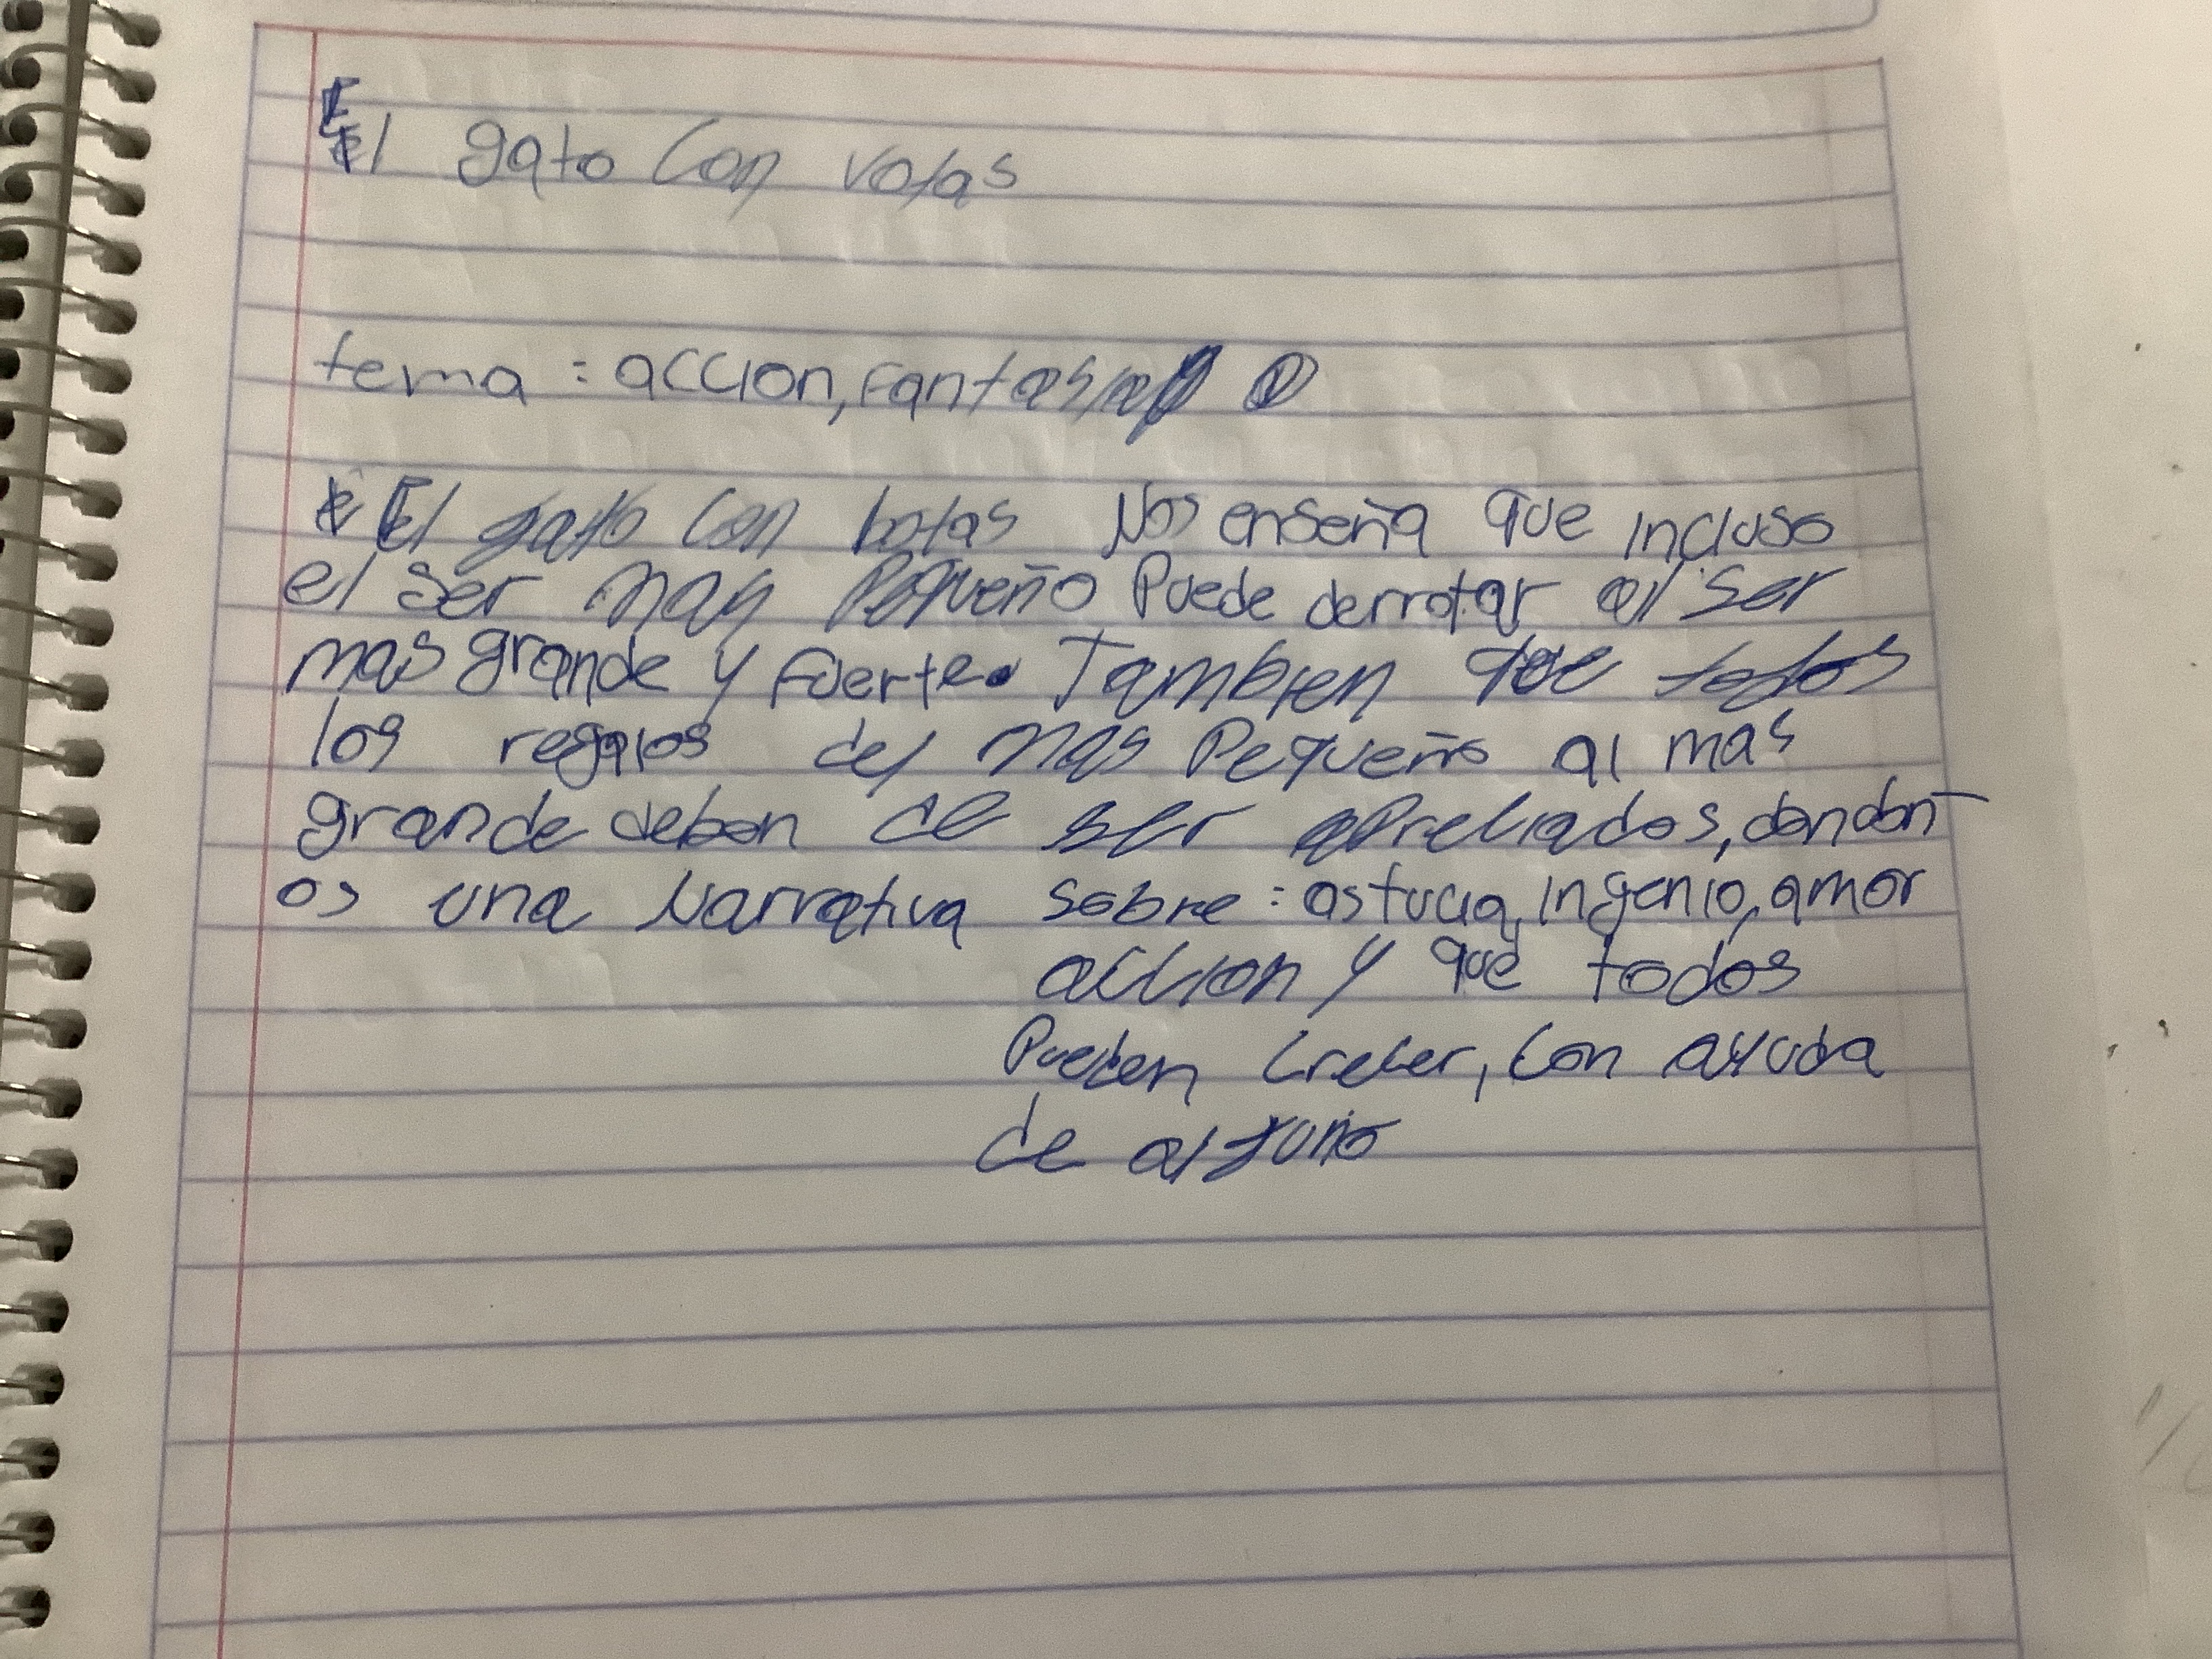 El gato con votas
tema : accion, fantasia
El gato con botas Nos enseña que incluso
el ser mas Pequeño Puede derrotar al ser
mas grande y fuerte. Tambien que todos
los regalos del mas Pequeño al mas
grande deben de ser apreciados, dandon-
os una Narrativa sobre : astucia, ingenio, amor
accion y que todos
Pueden crecer, con ayuda
de alguno